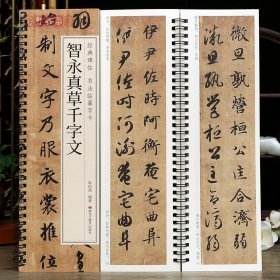 制文字乃服衣裳推位
经典碑帖 书法临摹字卡
智永真草千字文
伊尹佐時阿衡奄宅曲阜
伊尹佐時阿衡奄宅曲阜
微旦孰營桓公匡合濟弱
微旦孰營桓公匡合濟弱